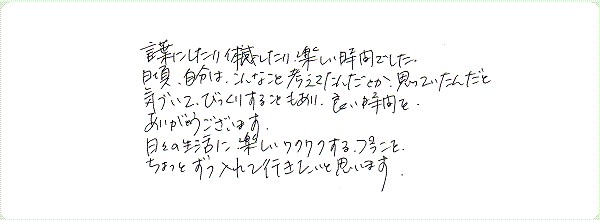 言葉にしたり体感したり楽しい時間でした。
日頃、自分は、こんなこと考えてたんだとか、思っていたんだと
気づいて、びっくりすることもあり、良い時間を、
ありがとうございます。
日々の生活に楽しいワクワクする、プランを、
ちょっとずつ入れて行きたいと思います。